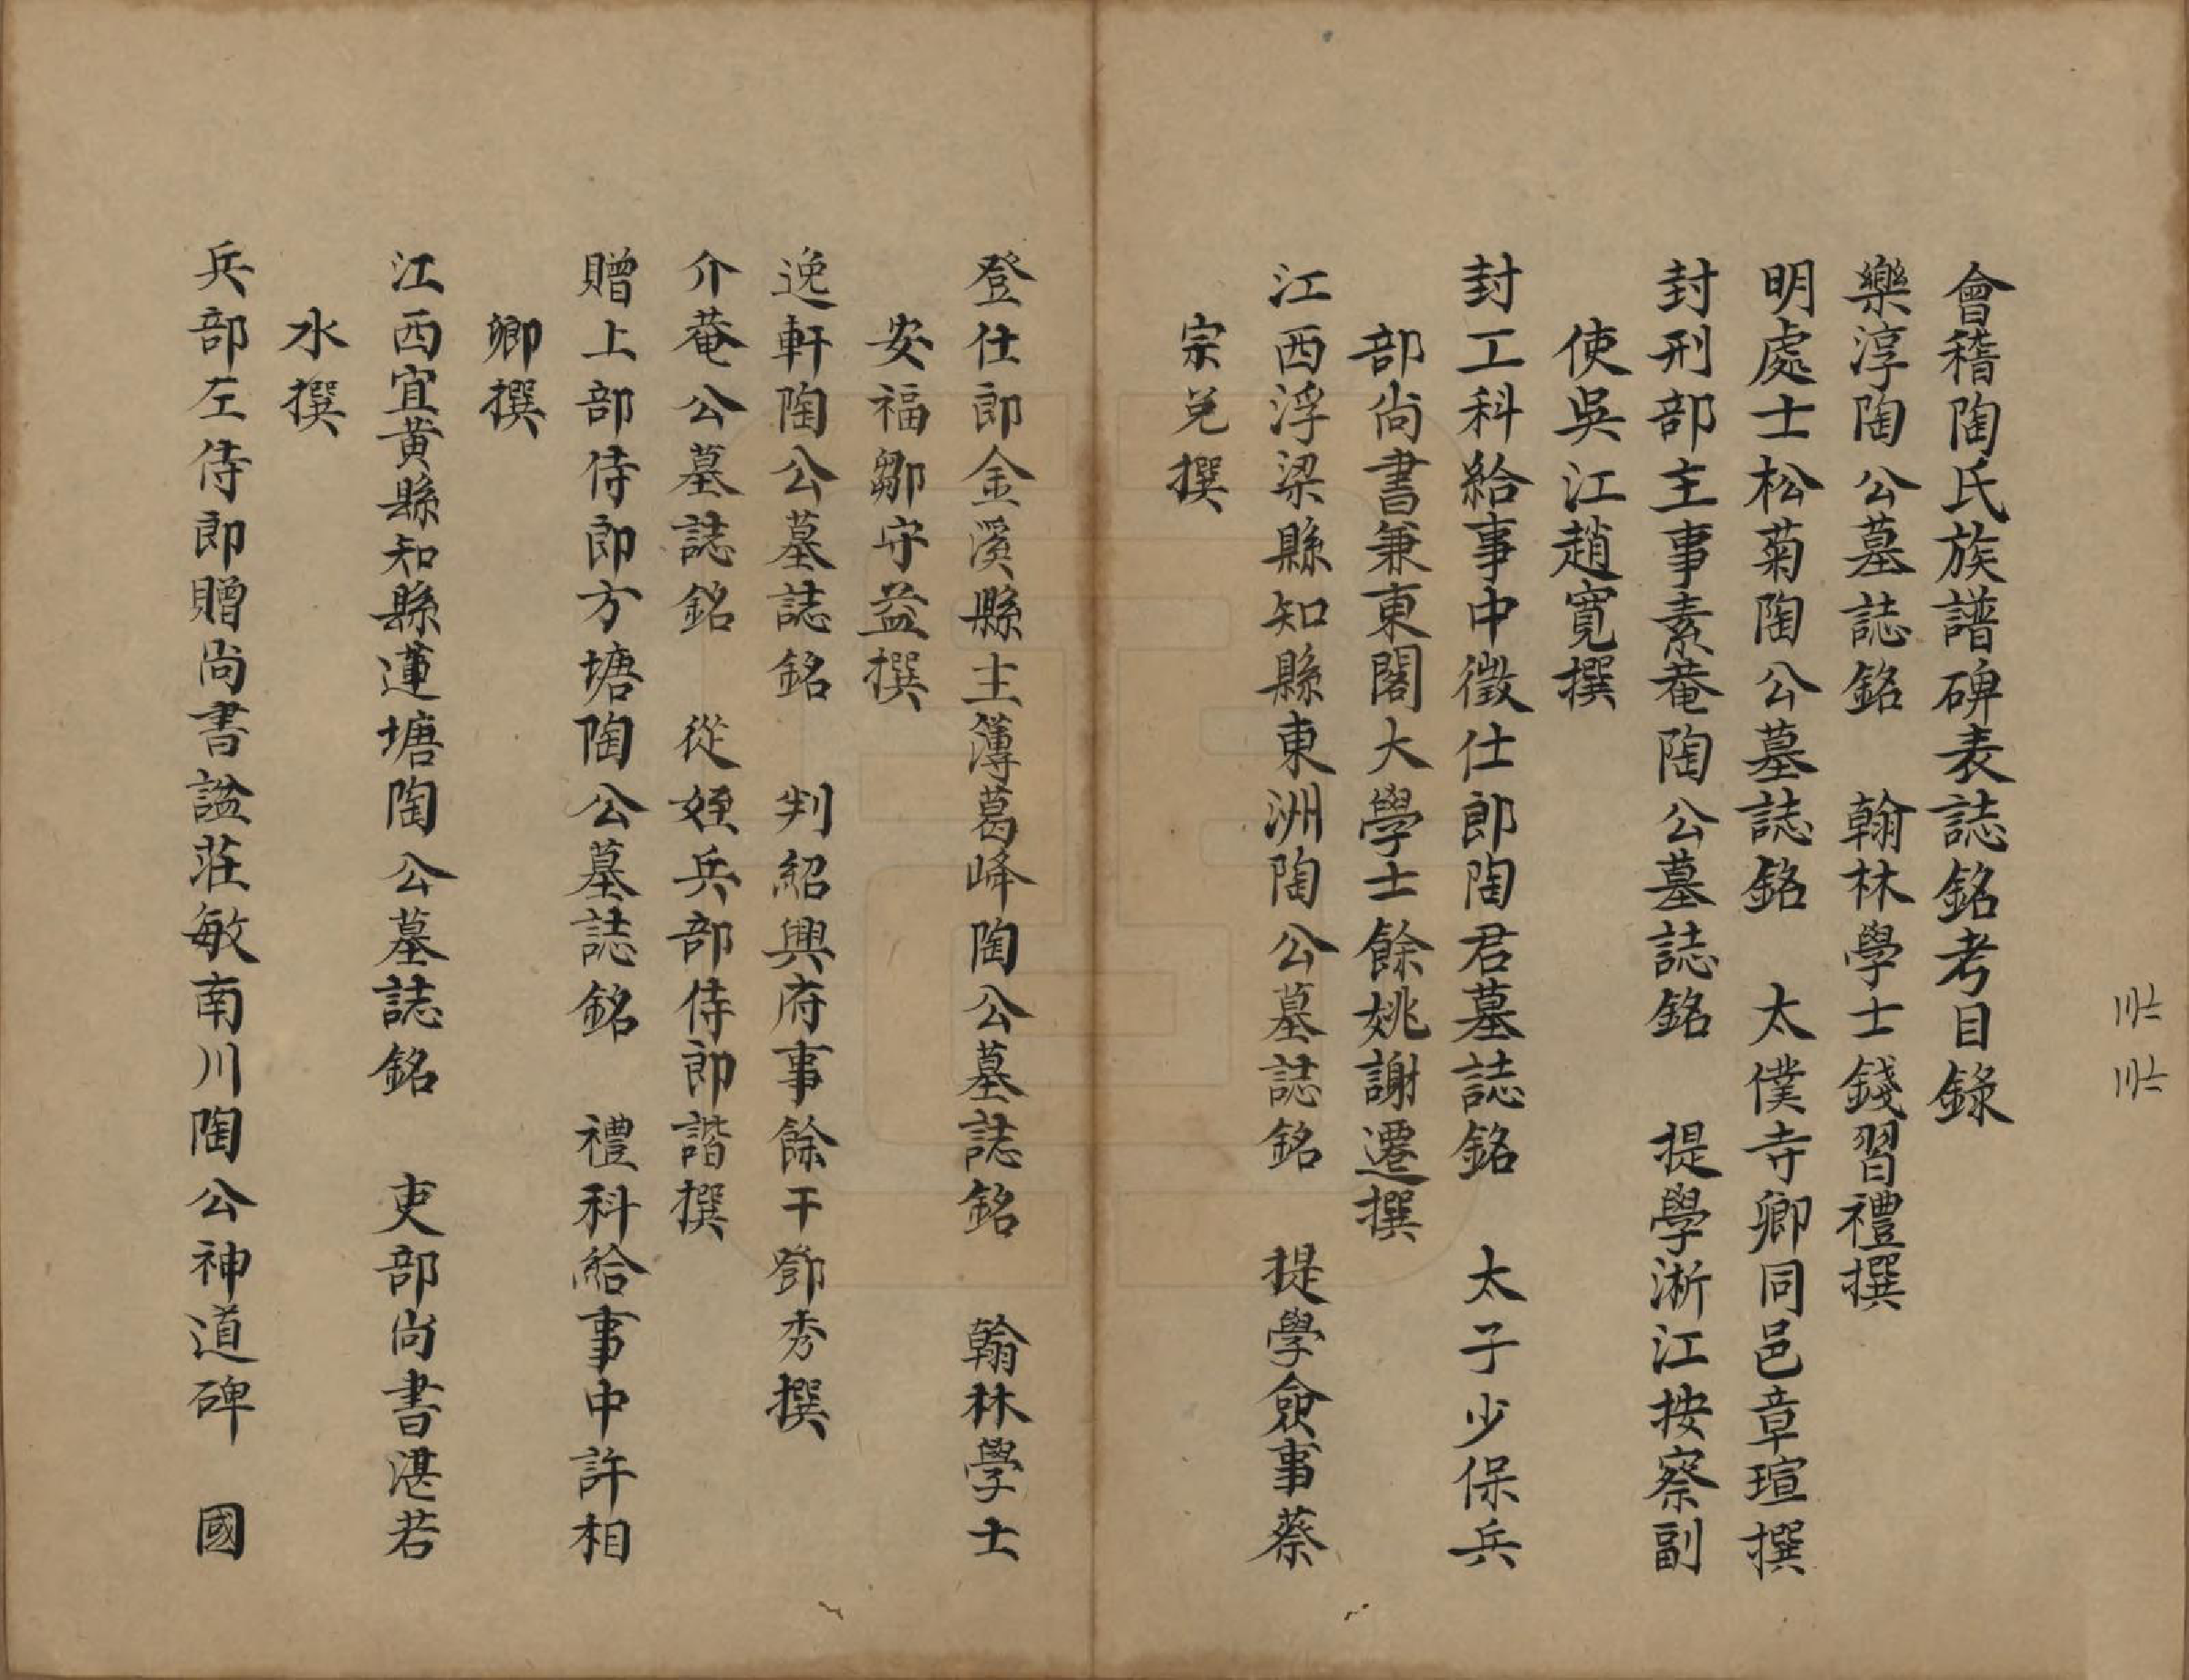 會稽陶氏族譜碑表誌銘考目錄
樂淳陶公墓誌銘　翰林學士錢習禮撰
明處士松菊陶公墓誌銘　太僕寺卿同邑章瑄撰
封刑部主事素菴陶公墓誌銘　提學淅江按察副
使吳江趙寬撰
封工科給事中徵仕郎陶君墓誌銘　太子少保兵
部尚書兼東閣大學士餘姚謝遷撰
江西浮梁縣知縣東洲陶公墓誌銘　提學僉事蔡
宗兌撰
登仕郎金溪縣主簿葛峰陶公墓誌銘　翰林學士
安福鄒守益撰
逸軒陶公墓誌銘　判紹興府事餘干鄧秀撰
介菴公墓誌銘　從姪兵部侍郎諧撰
贈上部侍郎方塘陶公墓誌銘　禮科給事中許相
卿撰
江西宜黃縣知縣蓮塘陶公墓誌銘　吏部尚書湛若
水撰
兵部左侍郎贈尚書諡莊敏南川陶公神道碑　國